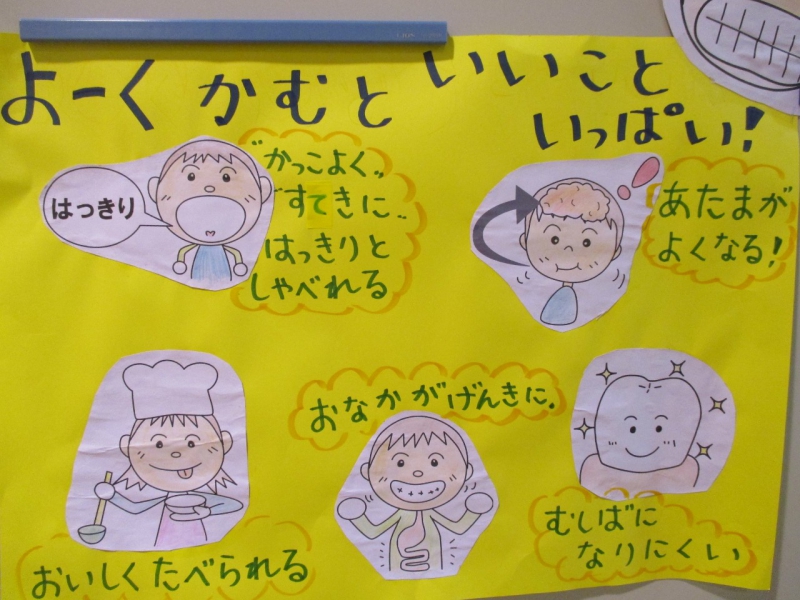 よーくかむと いいこと
いっぱい!
はっきり
"かっこよく"
"すてきに"
はっきりと
しゃべれる
あたまが
よくなる!
おいしくたべられる
おなかがげんきに。
むしばに
なりにくい